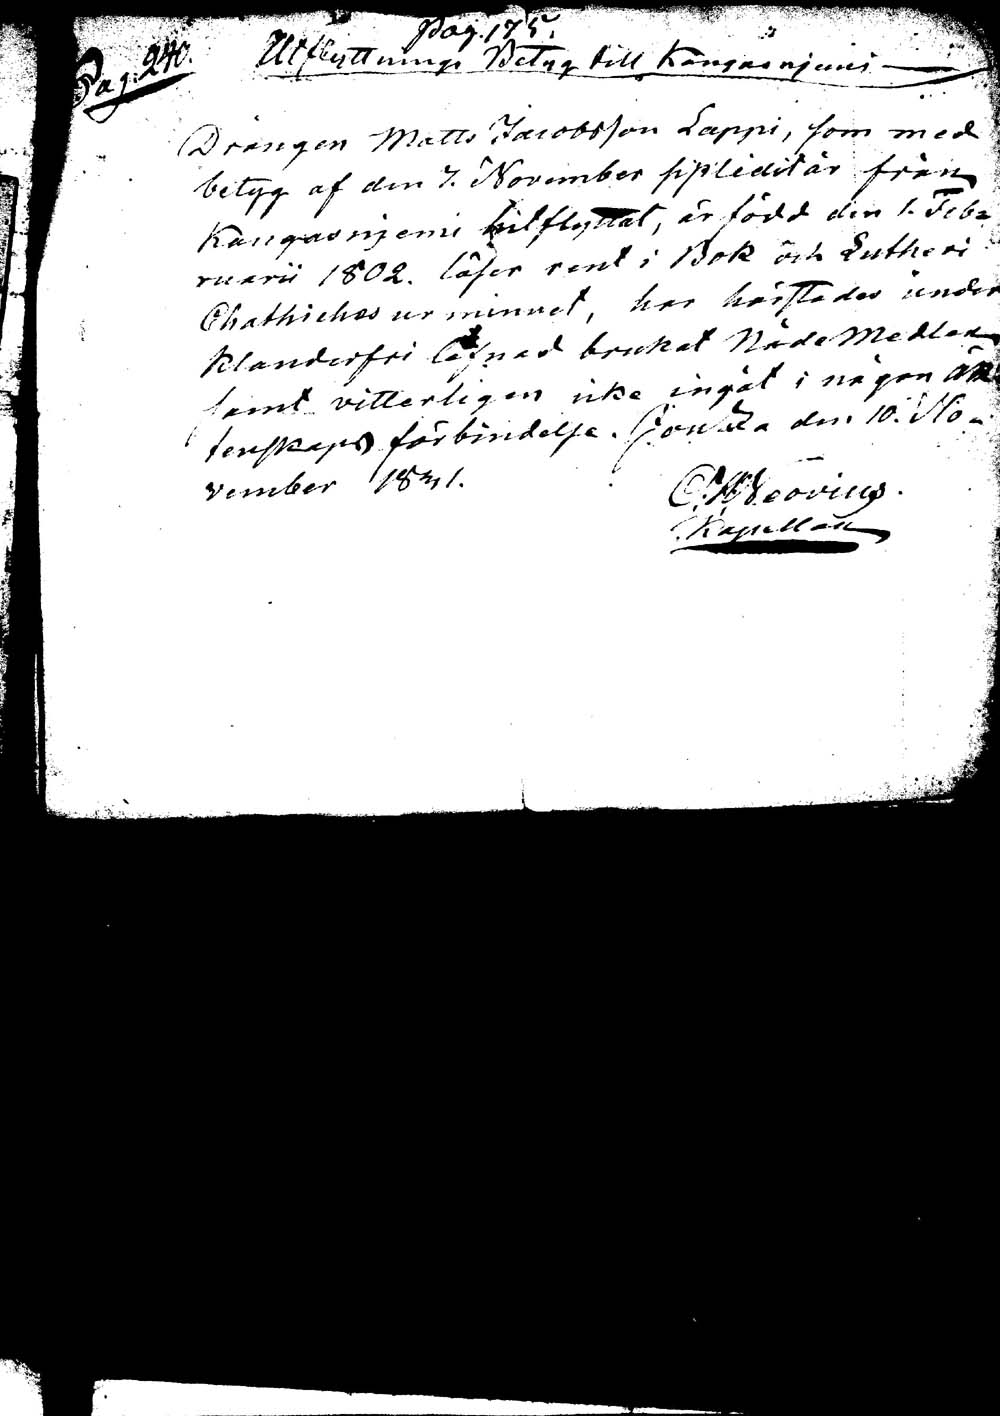 Pag. 175.
Pag. 240.
Utflyttnings Betyg till Kangasnjemi
Drängen Matts Jacobsson Lappi, som med
betyg af den 7. November sistledit år från
Kangasnjemi hitflyttat, är född den 1. Feb-
ruarii 1802. läser rent i Bok och Lutheri
Chathiches ur minnet, har härstädes under
klanderfri lefnad brukat Nåde Medlen
samt vitterligen icke ingåt i någon äk-
tenskaps förbindelse. den 10. No-
vember 1831.
Kapellan